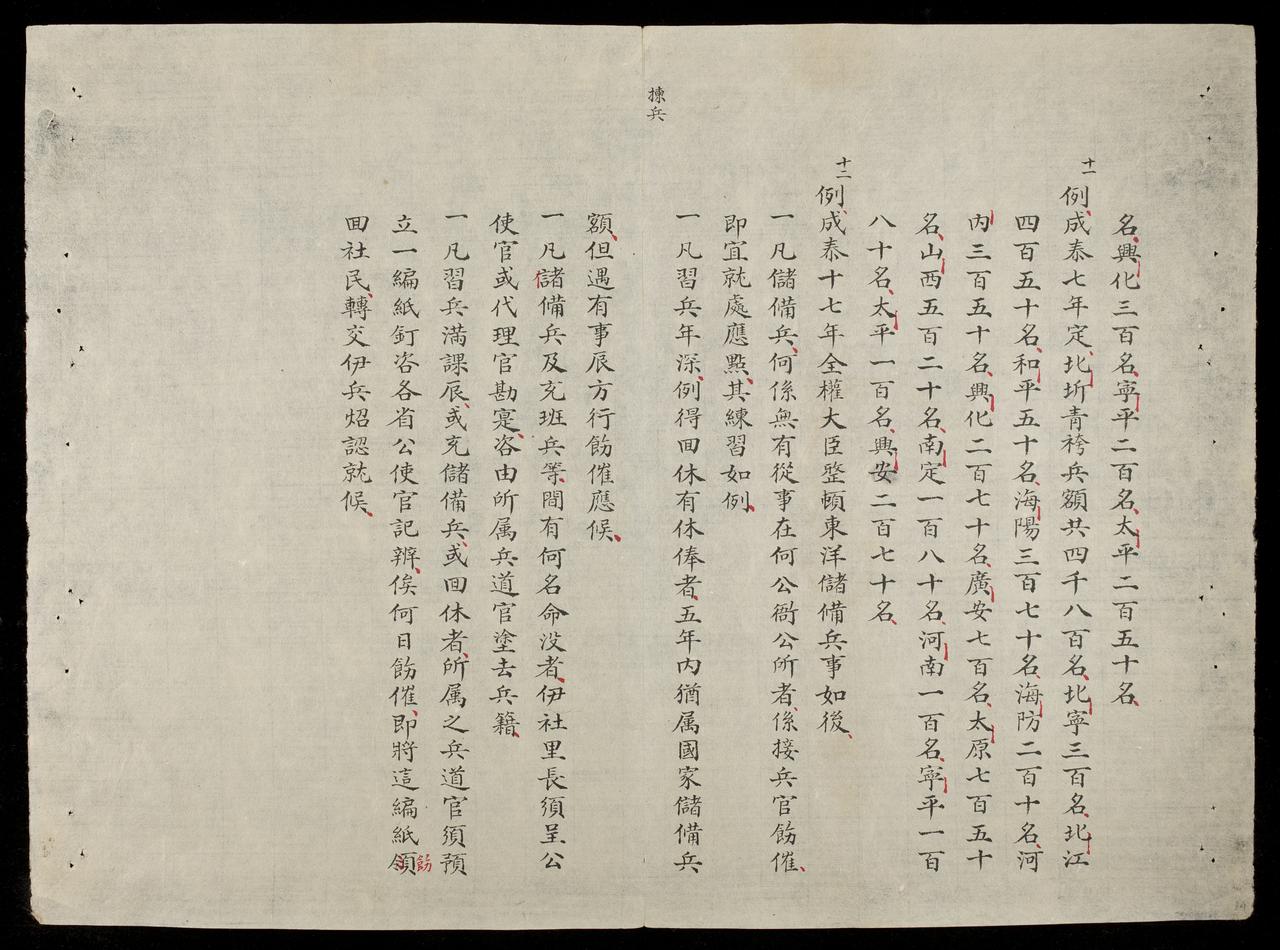 名興化三百名寧平二百名太平二百五十名
十一
例成泰七年定北圻青袴兵額共四千八百名北寧三百名北江
四百五十名和平五十名海陽三百七十名海防二百十名河
内三百五十名興化二百七十名廣安七百名太原七百五十
名山西五百二十名南定一百八十名河南一百名寧平一百
八十名太平一百名興安二百七十名
十二
例成泰十七年全權大臣整頓東洋儲備兵事如後
一凡儲備兵何係無有從事在何公衙公所者係接兵官飭催
即宜就處應點其練習如例
揀兵
一凡習兵年深例得囬休有休俸者五年内猶属國家儲備兵
額但遇有事辰方行飭催應候
一凡儲備兵及充班兵等間有何名命没者伊社里長須呈公
使官或代理官勘寔咨由所属兵道官塗去兵籍
一凡習兵滿課辰或充儲備兵或囬休者所属之兵道官須預
立一編紙釘咨各省公使官記辨俟何日飭催即將這編紙領
飭
囬社民轉交伊兵炤認就候